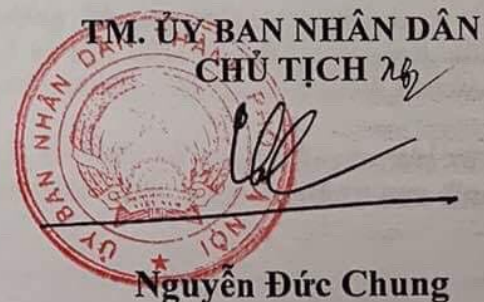 TM. ỦY BAN NHÂN DÂN
CHỦ TỊCH
ỦY BAN NHÂN DÂN
NỘI
VIỆT NAM
Nguyễn Đức Chung